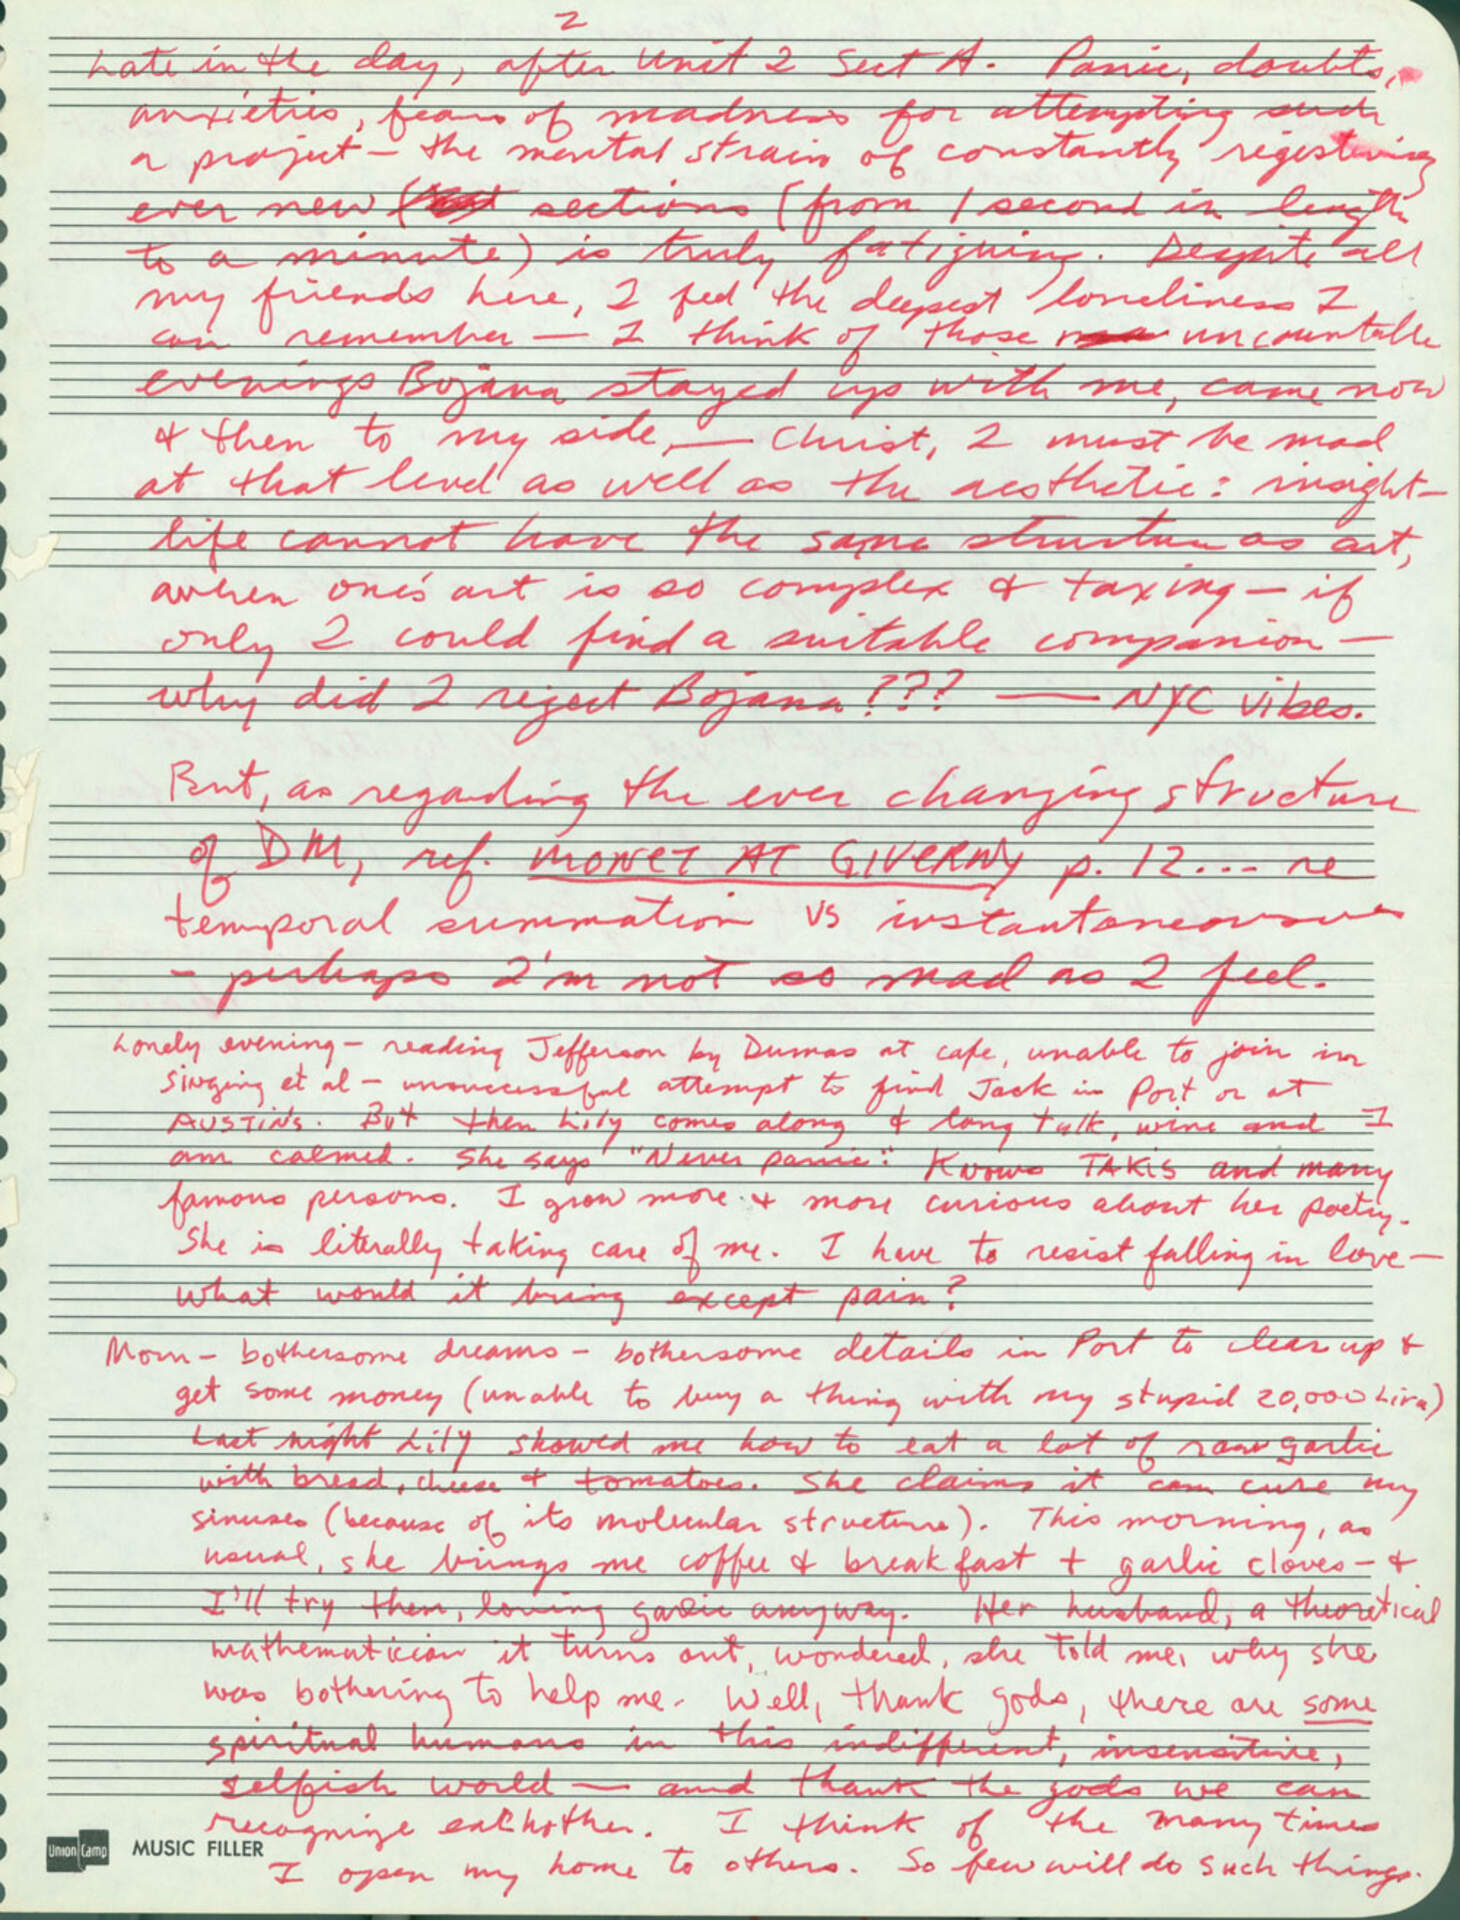 2
Late in the day, after Unit 2 Sect A. Panic, doubts,
anxieties, fears of madness for attempting such
a project — the mental strain of constantly registering
ever new sections (from 1 second in length
to a minute) is truly fatiguing. Despite all
my friends here, I feel the deepest loneliness I
can remember — I think of those uncountable
evenings Bojana stayed up with me, came now
& then to my side, — Christ, I must be mad
at that level as well as the aesthetic: insight—
life cannot have the same structure as art,
when one's art is so complex & taxing — if
only I could find a suitable companion —
why did I reject Bojana??? — NYC vibes.
But, as regarding the ever changing structure
of DM, ref. MONET AT GIVERNY p. 12... re
temporal summation vs instantaneousness
— perhaps I'm not so mad as I feel.
Lonely evening — reading Jefferson by Dumas at cafe, unable to join in
singing et al — unsuccessful attempt to find Jack in Port or at
AUSTINS. But then Lily comes along & long talk, wine and I
am calmed. She says "Never panic". Knows TAKIS and many
famous persons. I grow more & more curious about her poetry.
She is literally taking care of me. I have to resist falling in love —
what would it bring except pain?
Morn — bothersome dreams — bothersome details in Port to clear up &
get some money (unable to buy a thing with my stupid 20,000 Lira)
Last night Lily showed me how to eat a lot of raw garlic
with bread, cheese & tomatoes. She claims it can cure my
sinuses (because of its molecular structure). This morning, as
usual, she brings me coffee & breakfast + garlic cloves — &
I'll try them, loving garlic anyway. Her husband, a theoretical
mathematician it turns out, wondered, she told me, why she
was bothering to help me. Well, thank gods, there are some
spiritual humans in this indifferent, insensitive,
selfish world — and thank the gods we can
recognize eachother. I think of the many times
I open my home to others. So few will do such things.
Union Camp MUSIC FILLER